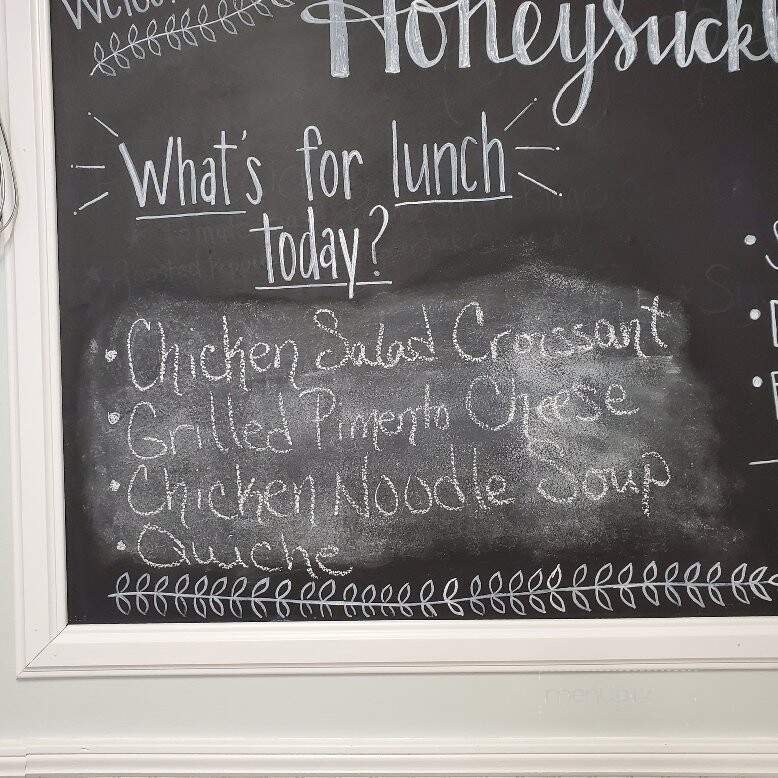 Honeysuckl
What's for lunch
today?
• Chicken Salad Croissant
• Grilled Pimento Cheese
• Chicken Noodle Soup
• Quiche